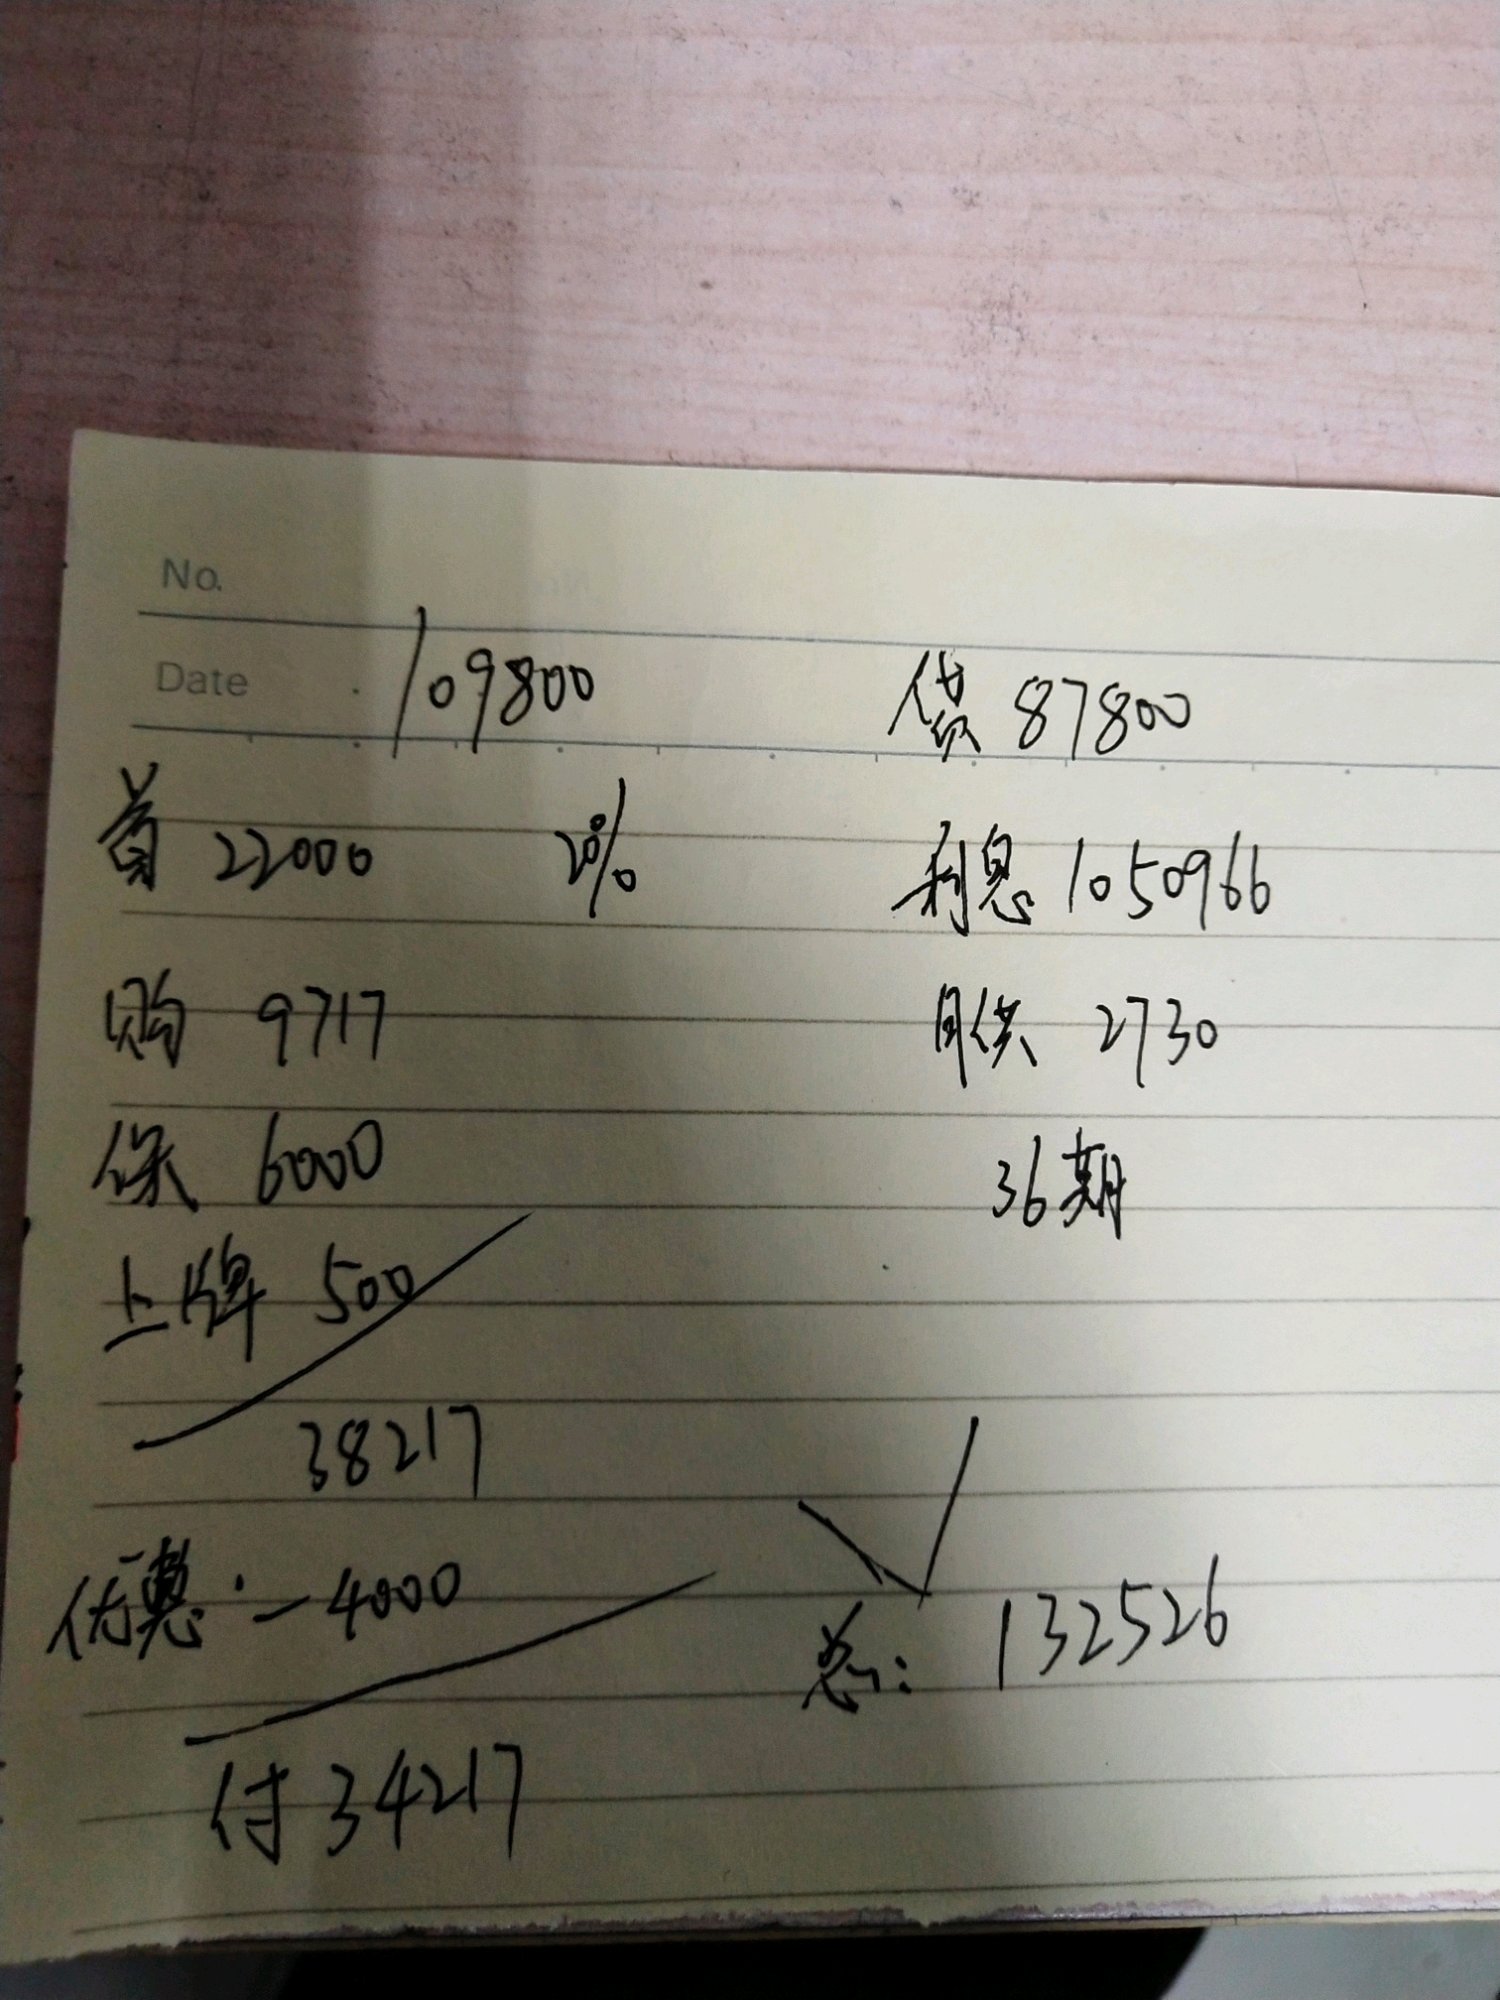 No.
Date 109800 贷 87800
首 22000 20% 利息 1050966
购 9717 月供 2730
保 6000 36期
上牌 500
38217
优惠:-4000
总: 132526
付 34217